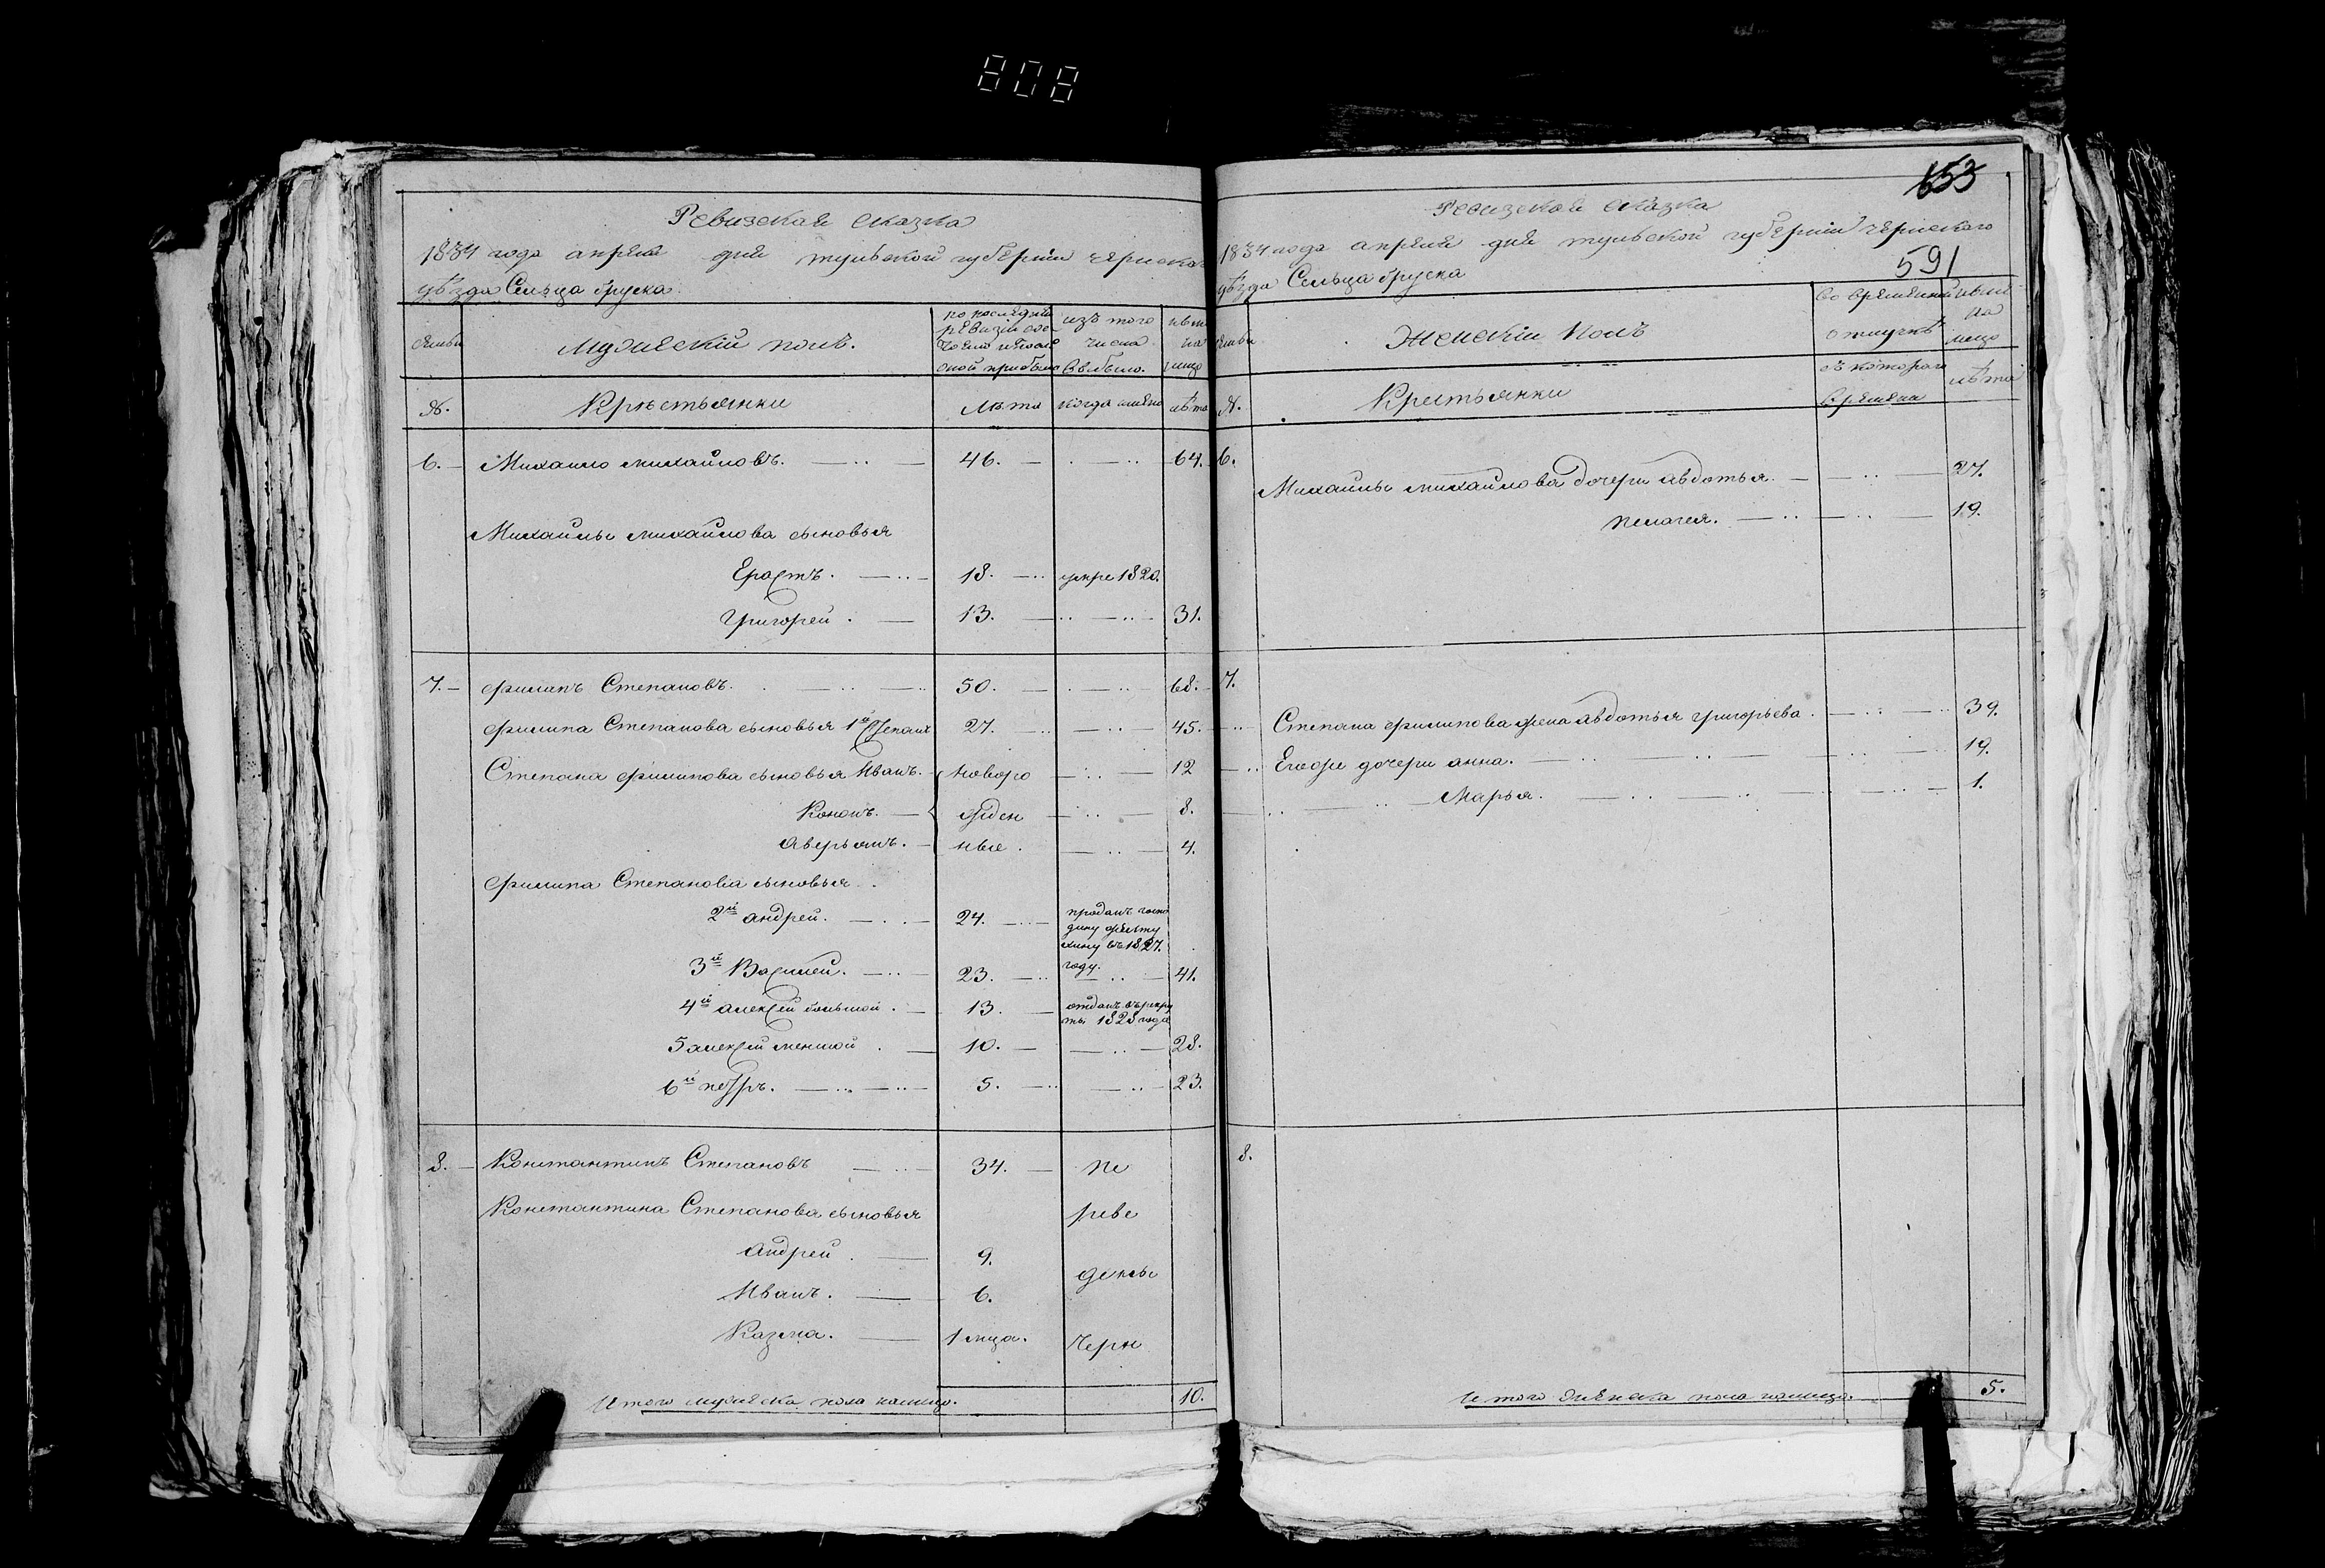 808
Ревизская сказка
1834 года апреля дня тульской губерніи чернска
уѣзда Сельца бруска
семьи
мужескій полъ.
по последней
ревизіи сос-
тояло и после
оной прибыло
изъ того
числа
выбыло.
ныне
на
лицо
№.
Крестьянки
Лѣта
когда имено
лѣта
6. Михаило михайловъ. 46. 64.
Михайлы михайлова сыновья
Ерастъ. 18. умре 1820.
Григорей. 13. 31.
7. филипъ Степановъ. 50. 68.
филипа Степанова сыновья 1й Степанъ 27. 45.
Степана филипова сыновья Иванъ. новоро 12
Кононъ. жден 8.
Аверьянъ. ные. 4.
филипа Степанова сыновья.
2й андрей. 24. проданъ госпо
дину
хину въ 1827.
году.
3й Василей. 23. 41.
4й алексей большой. 13. отданъ въ рекру
ты 1828 года
5 алексей меншой. 10. 28.
6й петръ. 5. 23.
8. Константинъ Степановъ 34. пе
Константина Степанова сыновья реве
Андрей. 9.
дены
Иванъ. 6.
Казма. 1 мца. Черн
Итого мужеска пола налицо. 10.
653
Ревизская сказка
1834 года апреля дня тульской губерніи чернскаго
591
уѣзда Сельца бруска
семьи
Женскій полъ
Во временной
отлучкѣ
ныне
на
лицо
№.
Крестьянки
съ котораго
времени
лѣта
6.
Михайлы михайлова дочери авдотья. 27.
пелагея. 19.
7.
Степана филипова жена авдотья григорьева. 39.
Егоже дочери анна. 19.
Марья. 1.
8.
Итого женска пола налицо. 5.